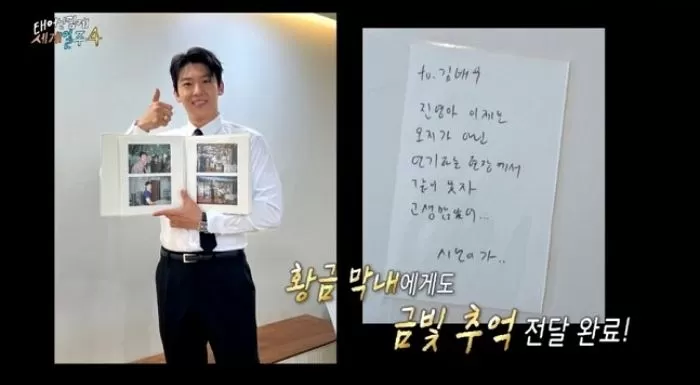 태어난김에
세계일주4
to. 김배우
진영아 이제는
오지가 아닌
연기하는 현장에서
같이 보자
고생많았어...
시언이가..
황금 막내에게도
금빛 추억 전달 완료!